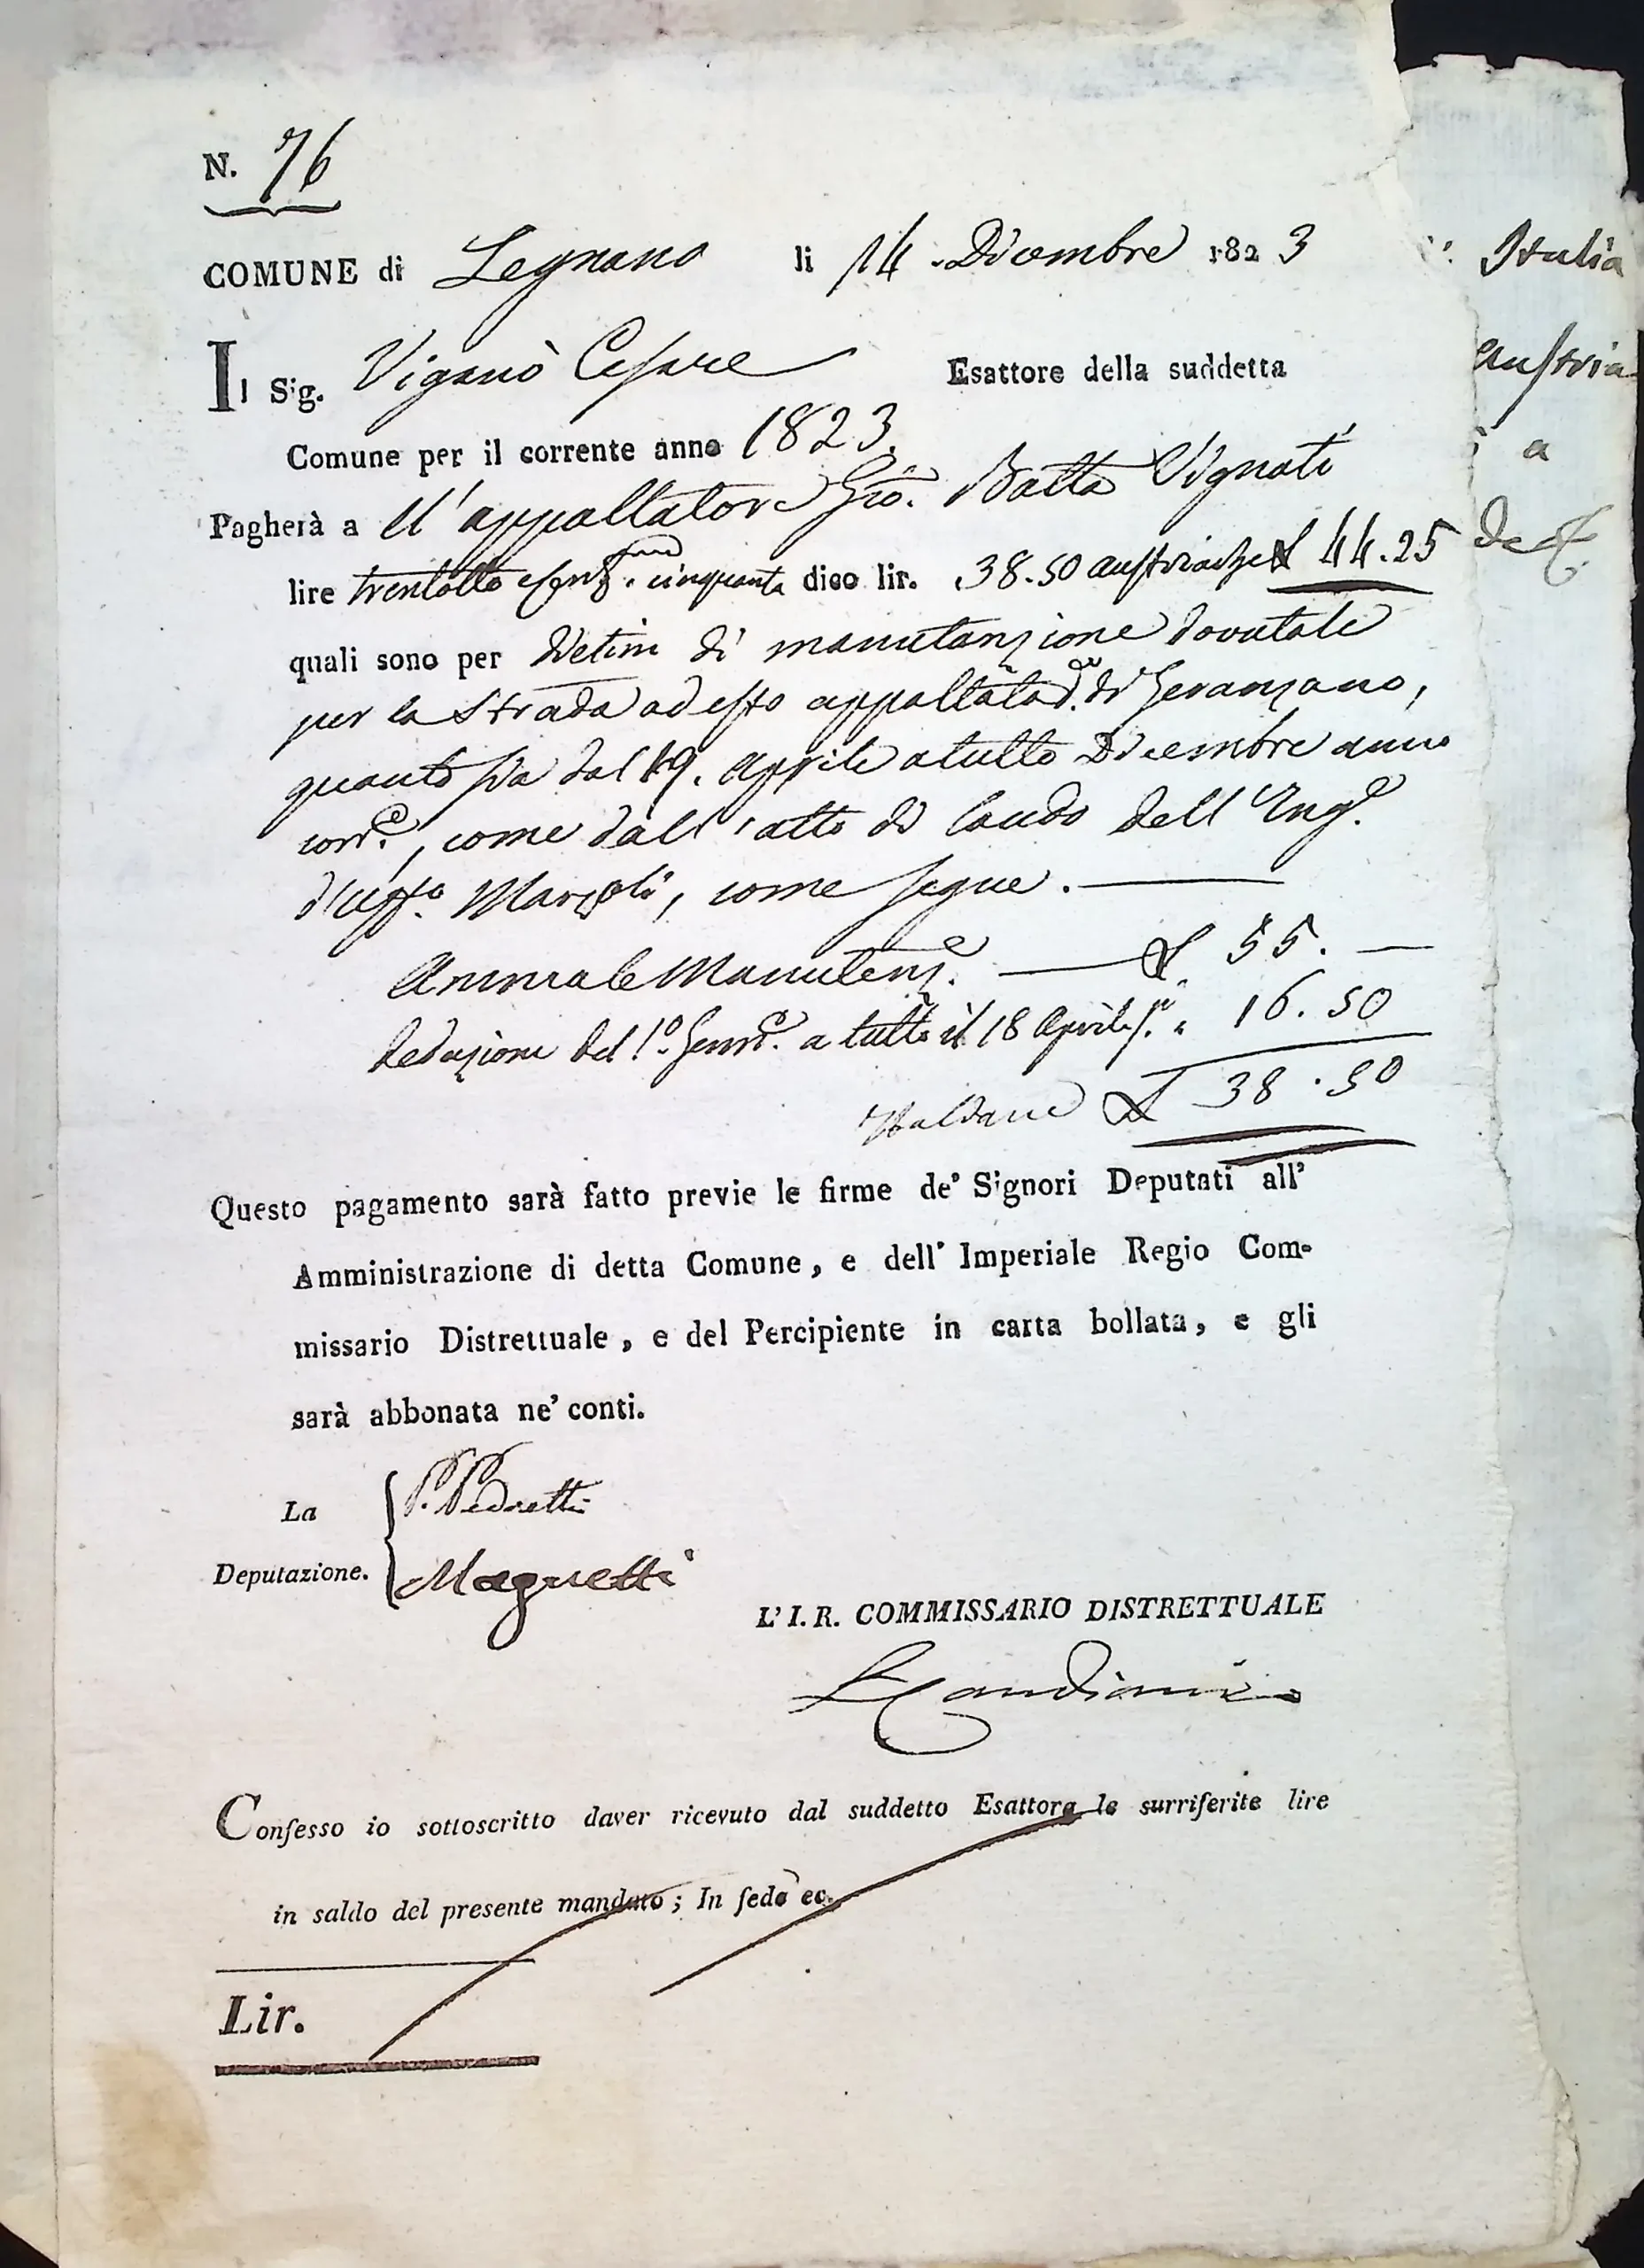 N. 76
COMUNE di Legnano li 14. Dicembre 1823
Il Sig. Viganò Cesare Esattore della suddetta
Comune per il corrente anno 1823.
Pagherà a ll'appaltatore Gio. Batta Vignati
lire trentotto cinquanta dico lir. 38.50 austriache £ 44.25
quali sono per di manutenzione dovutale
per la Strada ad esso appaltata di Geranzano,
quanto sia dal 19. Aprile a tutto Dicembre anno
corre., come dall'atto di laudo dell'Inge.
d'Uffo. , come segue.
Annuale Manutenze. £ 55. —
Deduzione del 1o. Genne. a tutto il 18 Aprile " 16.50
£ 38.50
Questo pagamento sarà fatto previe le firme de' Signori Deputati all'
Amministrazione di detta Comune, e dell' Imperiale Regio Com-
missario Distrettuale, e del Percipiente in carta bollata, e gli
sarà abbonata ne' conti.
La
Deputazione.
P. Pedretti
Magnetti
L' I. R. COMMISSARIO DISTRETTUALE
Confesso io sottoscritto daver ricevuto dal suddetto Esattore le surriferite lire
in saldo del presente mandato; In fede ec.
Lir.
Italia
austria
a
de